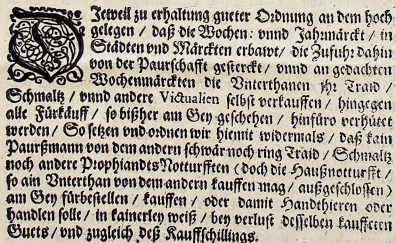 DJeweil zu erhaltung gueter Ordnung an dem hoch
gelegen / daß die Wochen: vnnd Jahrmärckt / in
Städten vnd Märckten erbawt / die Zufuhr dahin
von der Paurschafft gesterckt / vnnd an gedachten
Wochenmärckten die Vnterthanen jhr Traid /
Schmaltz / vnnd andere Victualien selbst verkauffen / hingegen
alle Fürkäuff / so bißher am Gey geschehen / hinfüro verhütet
werden / So setzen vnd ordnen wir hiemit widermals / daß kain
Paurßmann von dem andern schwär noch ring Traid / Schmaltz
noch andere Prophiandts Notturfften (doch die Haußnotturfft /
so ain Vnterthan von dem andern kauffen mag / außgeschlossen)
am Gey fürbestellen / kauffen / oder damit Handthieren oder
handlen solle / in kainerley weiß / bey verlust desselben kaufften
Guets / vnd zugleich deß Kauffschillings.